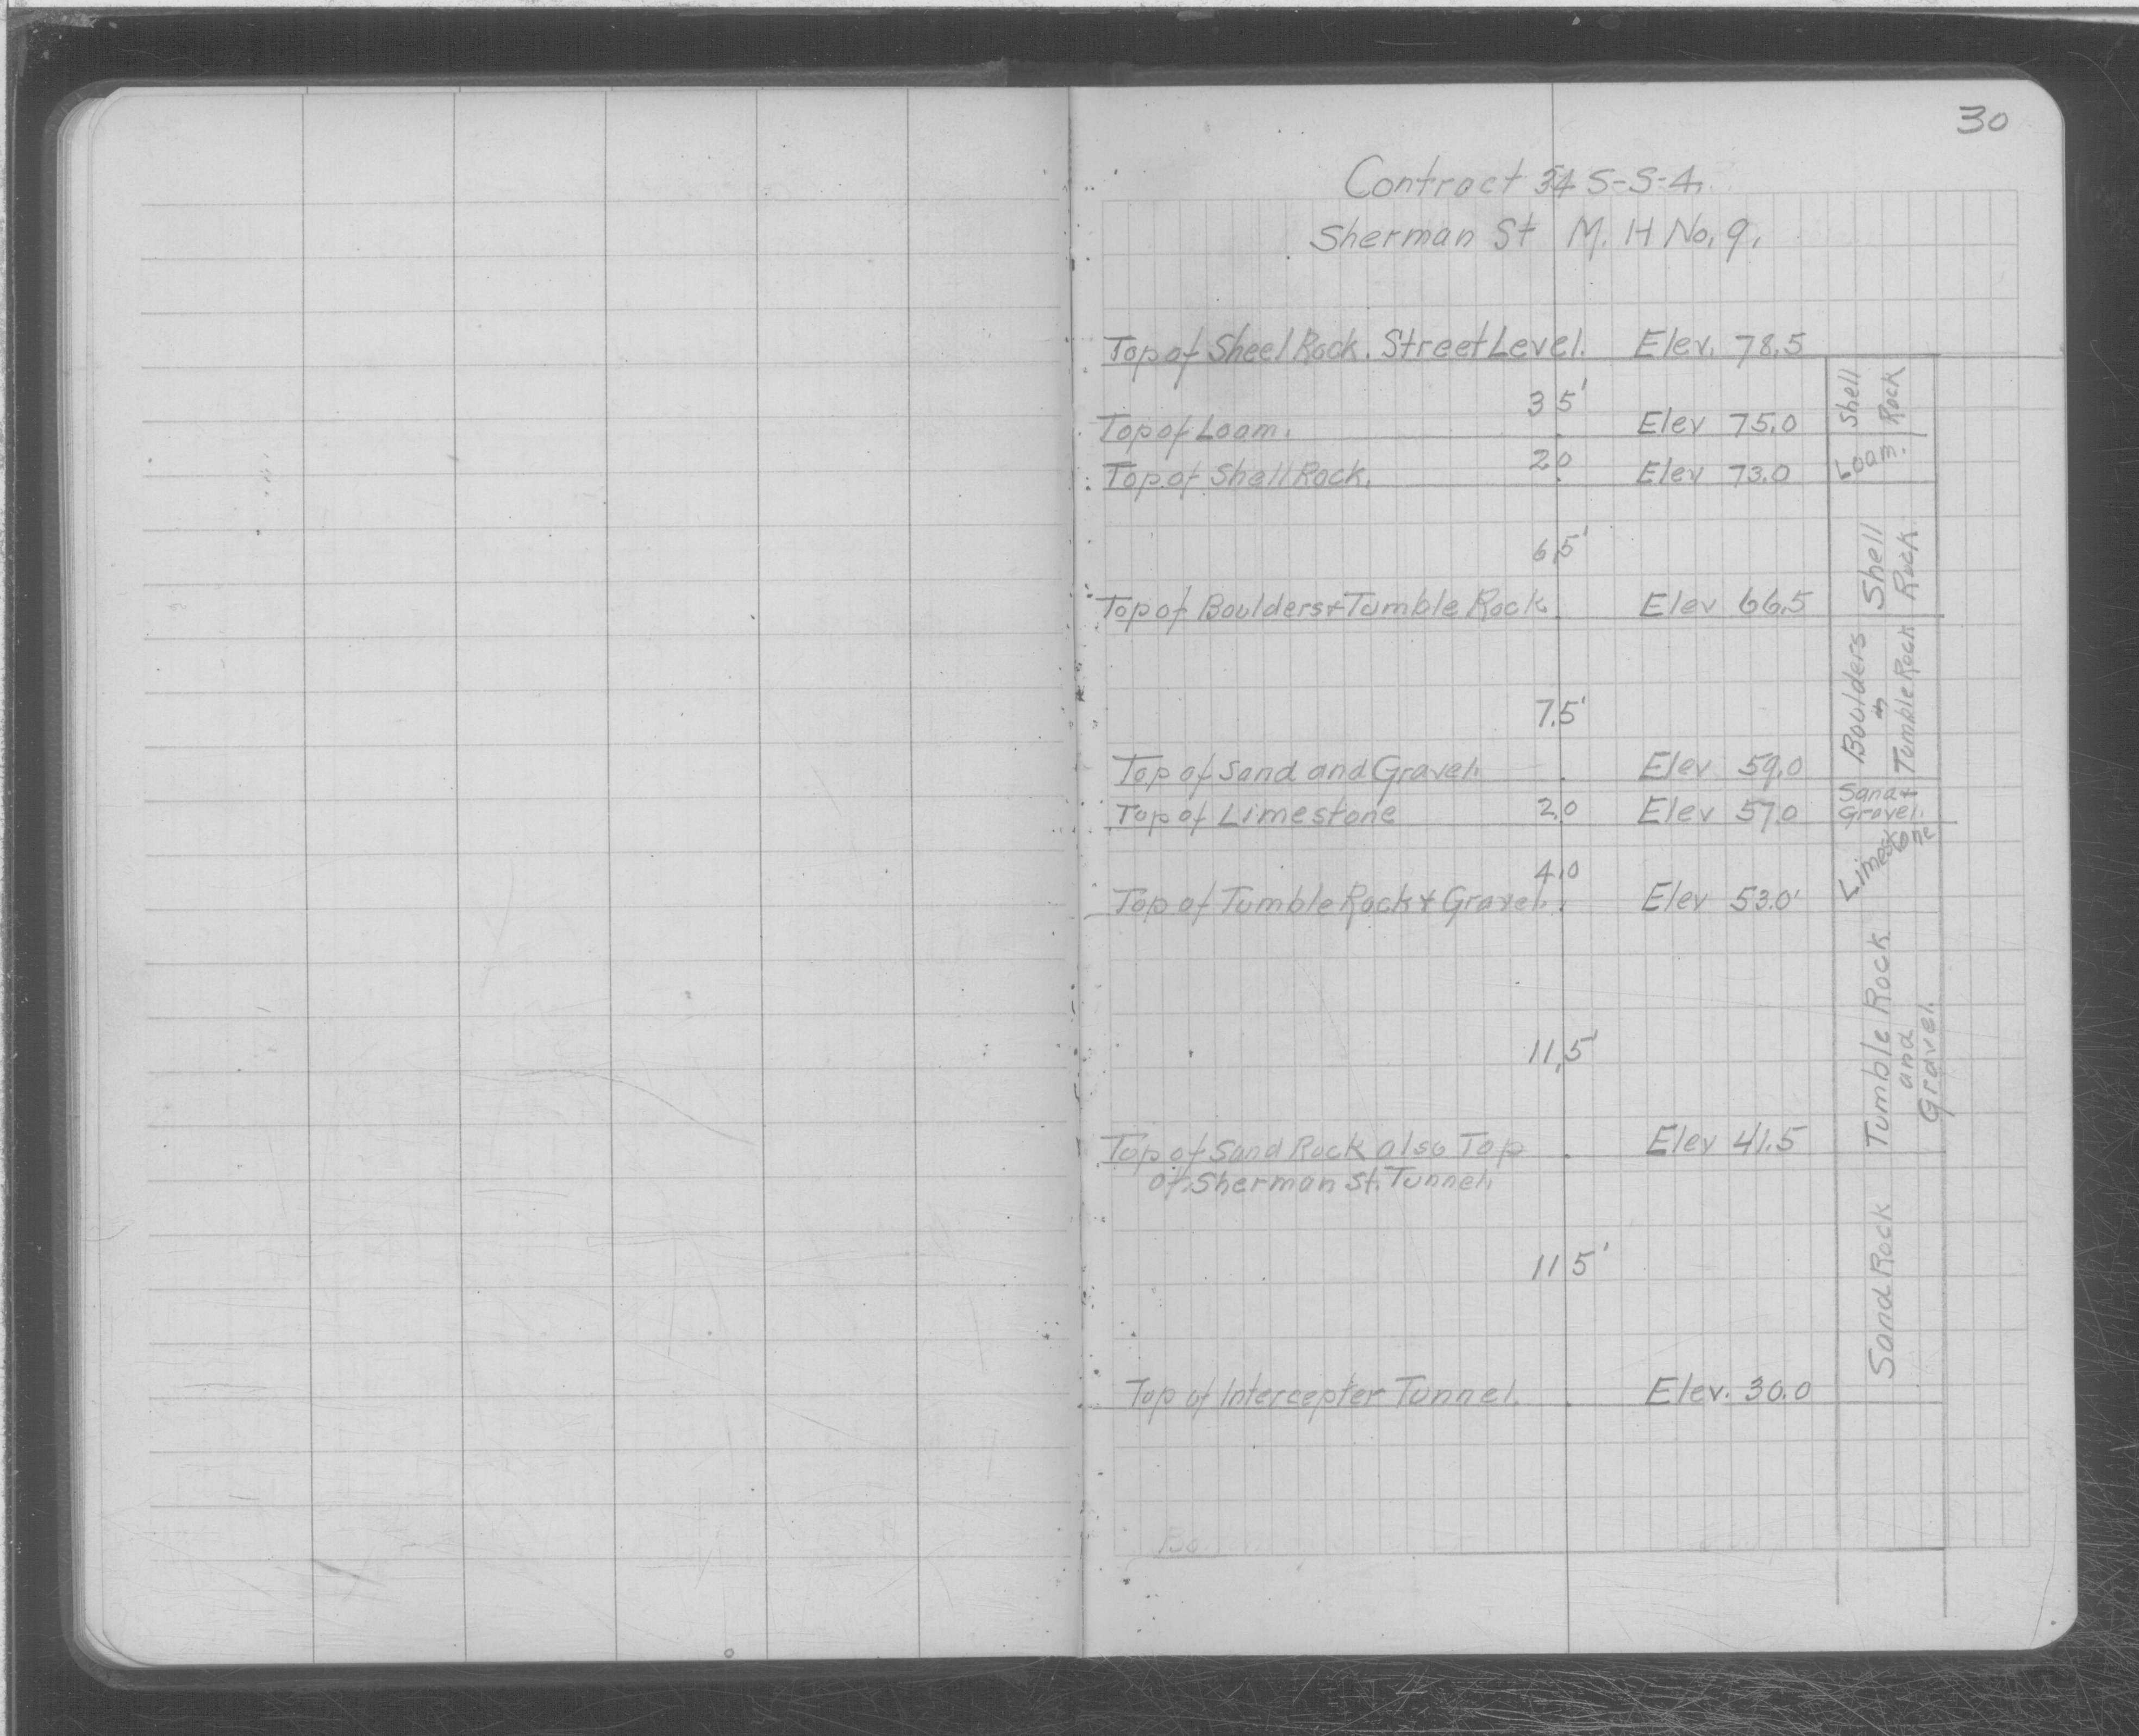 30
Contract 34 S-S-4.
Sherman St M. H No. 9.
Top of Sheel Rock. Street Level. Elev. 78.5
3.5'
Top of Loam. Elev 75.0
2.0
Top of Shell Rock. Elev 73.0
6.5'
Top of Boulders + Tumble Rock Elev 66.5
7.5'
Top of Sand and Gravel. Elev 59.0
Top of Limestone 2.0 Elev 57.0
4.0
Top of Tumble Rock + Gravel. Elev 53.0'
11.5'
Top of Sand Rock also Top Elev 41.5
of Sherman St. Tunnel.
11.5'
Top of Intercepter Tunnel. Elev. 30.0
Shell
Rock
Loam.
Shell
Rock
Boulders
+
Tumble Rock
Sand +
Gravel.
Limestone
Tumble Rock
and
Gravel.
Sand Rock